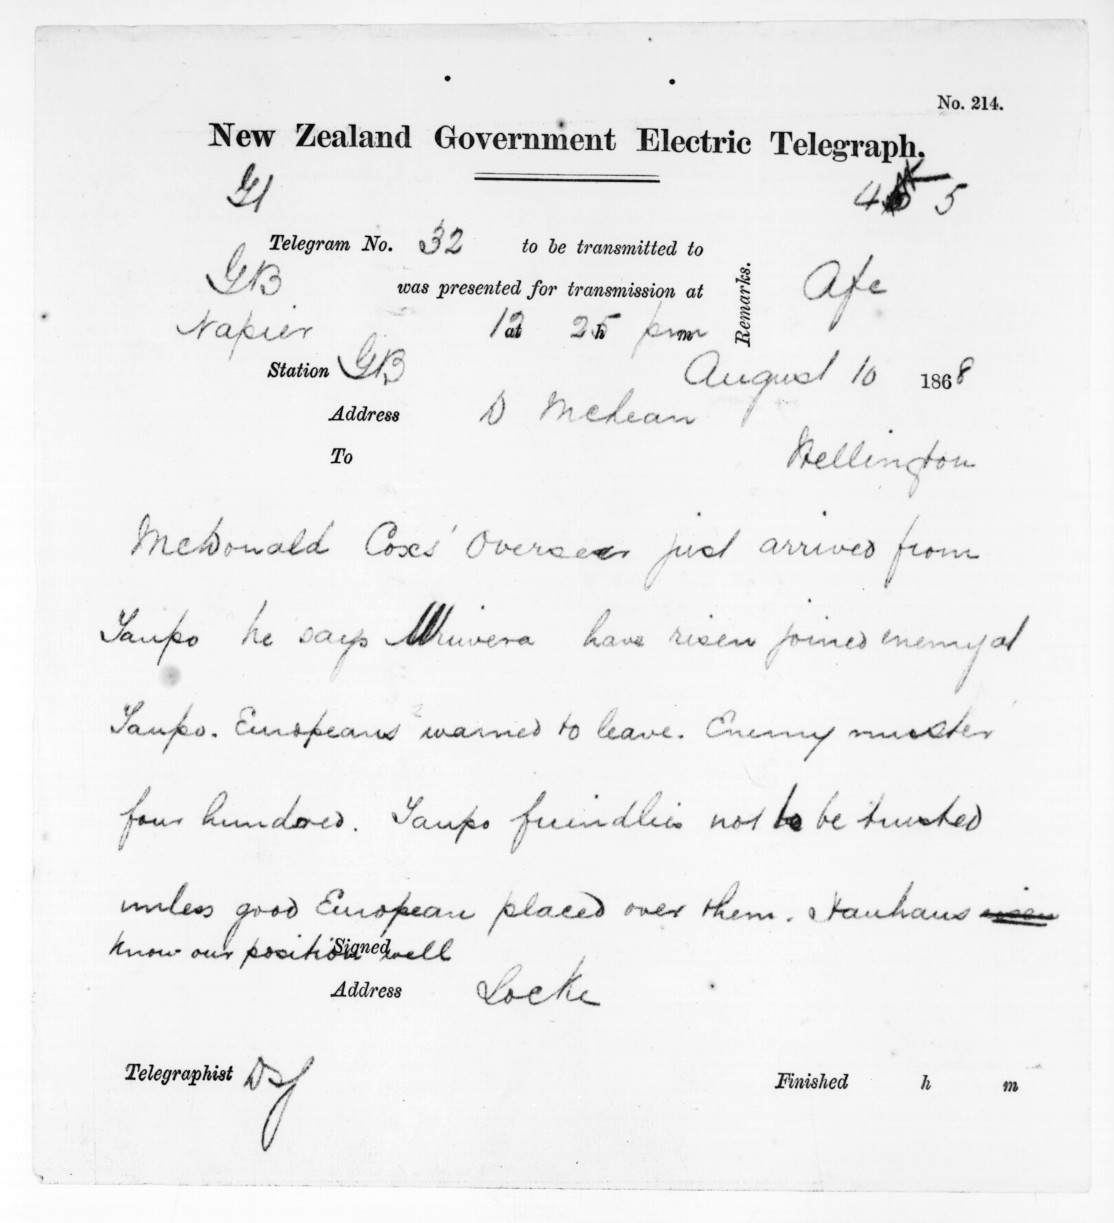 No. 214.
New Zealand Government Electric Telegraph.
4 5
Telegram No. 32 to be transmitted to
GB was presented for transmission at
Remarks.
Napier 12 at 25 h pm m
Station GB August 10 1868
Address D McLean
To Wellington
McDonald Coxs' Overseer just arrived from
Taupo he says have risen joined enemy at
Taupo. Europeans warned to leave. Enemy muster
four hundred. Taupo friendlies not to be trusted
unless good European placed over them. Hauhaus
know our position well
Signed
Address Locke
Telegraphist
Finished h m